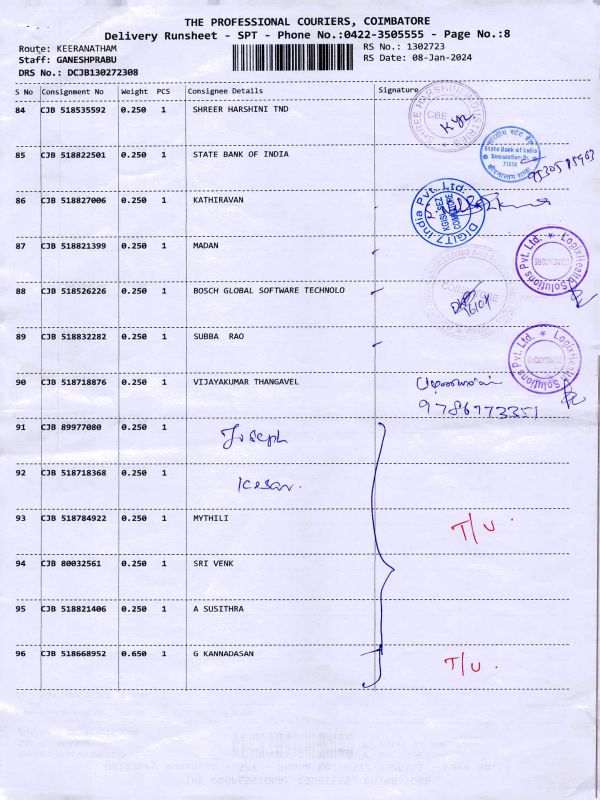 THE PROFESSIONAL COURIERS, COIMBATORE
Delivery Runsheet - SPT - Phone No.:0422-3505555 - Page No.:8
Route: KEERANATHAM RS No.: 1302723
Staff: GANESHPRABU RS Date: 08-Jan-2024
DRS No.: DCJB130272308
S No Consignment No Weight PCS Consignee Details Signature
84 CJB 518535592 0.250 1 SHREER HARSHINI TND
85 CJB 518822501 0.250 1 STATE BANK OF INDIA
State Bank of India
86 CJB 518827006 0.250 1 KATHIRAVAN
DIGIT7 India Pvt. Ltd.
87 CJB 518821399 0.250 1 MADAN
LogixHealth Solutions Pvt. Ltd.
COIMBATORE
88 CJB 518526226 0.250 1 BOSCH GLOBAL SOFTWARE TECHNOLO
COIMBATORE
89 CJB 518832282 0.250 1 SUBBA RAO
LogixHealth Solutions Pvt. Ltd.
COIMBATORE
90 CJB 518718876 0.250 1 VIJAYAKUMAR THANGAVEL
9786773351
91 CJB 89977080 0.250 1 Joseph
92 CJB 518718368 0.250 1 Kesar.
93 CJB 518784922 0.250 1 MYTHILI T/U.
94 CJB 80032561 0.250 1 SRI VENK
95 CJB 518821406 0.250 1 A SUSITHRA
96 CJB 518668952 0.650 1 G KANNADASAN T/U.